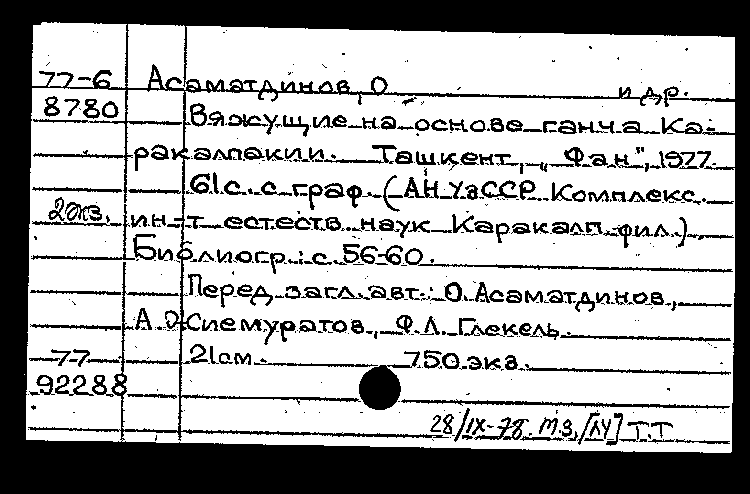 77-6 Асаматдинов, О и др.
8780 Вяжущие на основе ганча Ка-
ракалпакии. Ташкент, „Фан", 1977.
61с. с граф. (АН УзССР Комплекс.
2экз. ин-т естеств. наук Каракалп. фил.).
Библиогр.: с. 56-60.
Перед загл. авт.: О. Асаматдинов,
А. О. Сиемуратов, Ф.Л. Глекель.
77 21см. 750 экз.
92288
28/IX-78. М.З. Т.Т